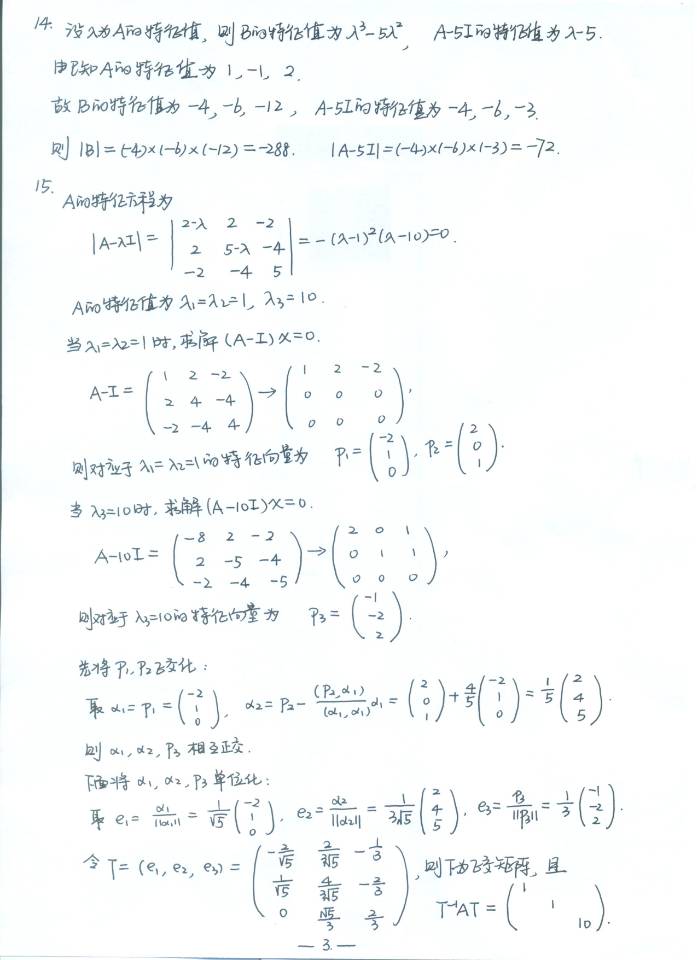 14. 设λ为A的特征值, 则B的特征值为λ³-5λ², A-5I的特征值为λ-5.
由已知A的特征值为 1, -1, 2.
故B的特征值为 -4, -6, -12, A-5I的特征值为 -4, -6, -3.
则 |B|=(-4)×(-6)×(-12)=-288. |A-5I|=(-4)×(-6)×(-3)=-72.
15. A的特征方程为
|A-λI| = | 2-λ 2 -2 ; 2 5-λ -4 ; -2 -4 5 | = -(λ-1)²(λ-10)=0.
A的特征值为 λ₁=λ₂=1, λ₃=10.
当λ₁=λ₂=1时, 求解 (A-I)x=0.
A-I = ( 1 2 -2 ; 2 4 -4 ; -2 -4 4 ) → ( 1 2 -2 ; 0 0 0 ; 0 0 0 ),
则对应于 λ₁=λ₂=1 的特征向量为 P₁=( -2 ; 1 ; 0 ), P₂=( 2 ; 0 ; 1 ).
当 λ₃=10时, 求解 (A-10I)x=0.
A-10I = ( -8 2 -2 ; 2 -5 -4 ; -2 -4 -5 ) → ( 2 0 1 ; 0 1 1 ; 0 0 0 ),
则对应于 λ₃=10的特征向量为 P₃=( -1 ; -2 ; 2 ).
先将 P₁, P₂正交化:
取 α₁=P₁=( -2 ; 1 ; 0 ), α₂=P₂-(P₂,α₁)/(α₁,α₁)α₁=( 2 ; 0 ; 1 )+4/5( -2 ; 1 ; 0 )=1/5( 2 ; 4 ; 5 ).
则 α₁, α₂, P₃ 相互正交.
下面将 α₁, α₂, P₃ 单位化:
取 e₁=α₁/||α₁||=1/√5( -2 ; 1 ; 0 ), e₂=α₂/||α₂||=1/3√5( 2 ; 4 ; 5 ), e₃=P₃/||P₃||=1/3( -1 ; -2 ; 2 ).
令 T=(e₁, e₂, e₃)=( -2/√5 2/3√5 -1/3 ; 1/√5 4/3√5 -2/3 ; 0 √5/3 2/3 ), 则T为正交矩阵, 且
T⁻¹AT=( 1 ; 1 ; 10 ).
— 3. —